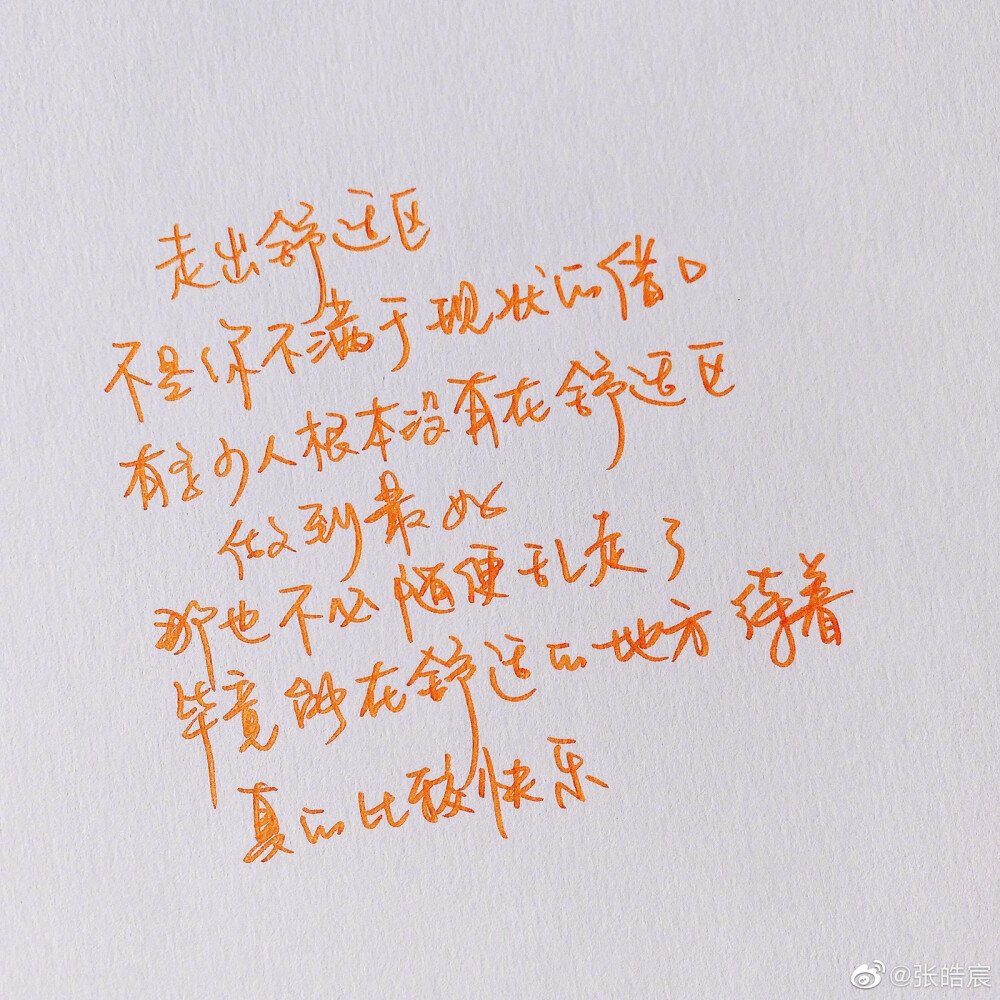 走出舒适区
不是你不满于现状的借口
有多少人根本没有在舒适区
做到最好
那也不必随便乱走了
毕竟能在舒适的地方待着
真的比较快乐
@张皓宸